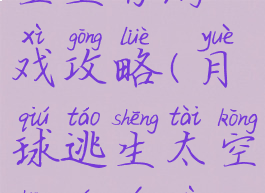 xì gōng lüè yuè
戏攻略(月
qiú táo shēng tài kōng
球逃生太空